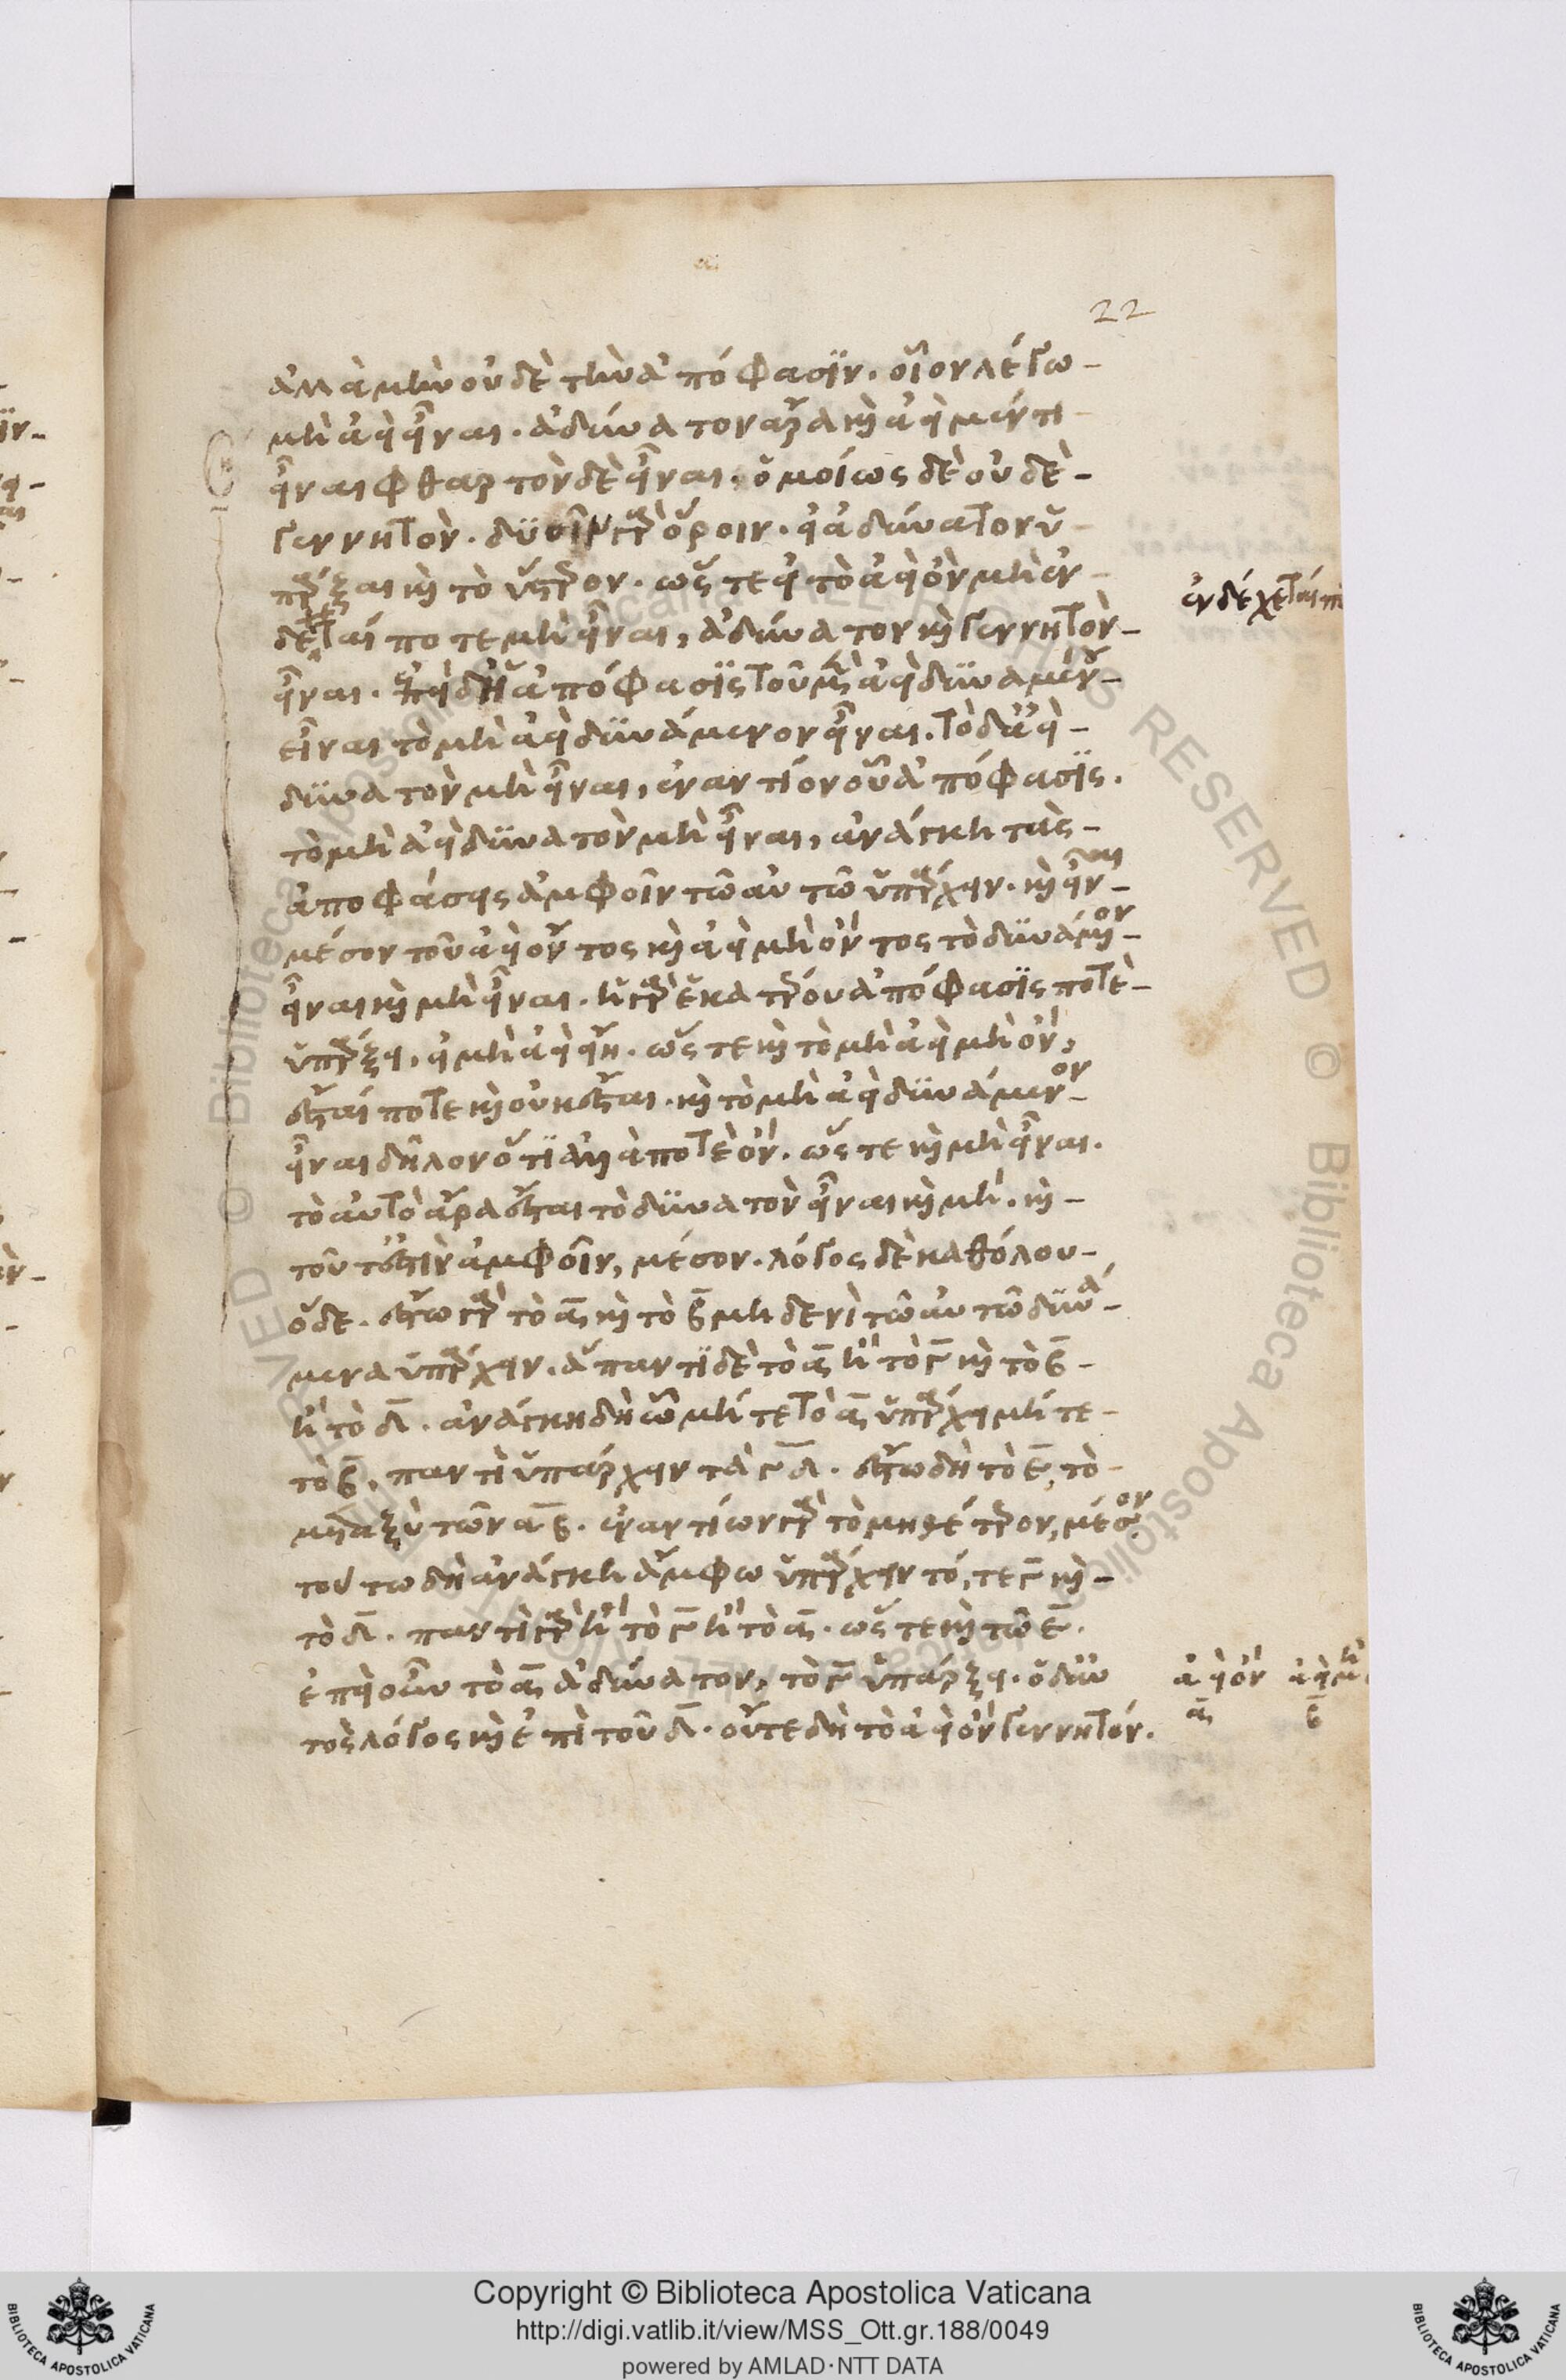 22
ἀλλὰ μὴν οὐδὲ τὴν ἀπόφασϊν. οἷον λέγω
μὴ ἀεὶ εἶναι. ἀδύνατον ἄρα καὶ ἀεὶ μέν τι
εἶναι φθαρτὸν δὲ εἶναι. ὁμοίως δὲ οὐδὲ
γεννητόν. δυοῖν γὰρ ὅροιν. εἰ ἀδύνατον ὑ
πάρξαι καὶ τὸ ὕστερον. ὥστε εἰ τὸ ἀεὶ ὂν μὴ ἐν
δέχεταί ποτε μὴ εἶναι, ἀδύνατον καὶ γεννητὸν
εἶναι. ἐπεὶ δὴ ἀπόφασϊς τοῦ μὲν ἀεὶ δυναμένου
εἶναι τὸ μὴ ἀεὶ δυνάμενον εἶναι. τὸ δ' ἀεὶ
δυνατὸν μὴ εἶναι, ἐναντίον οὗ ἀπόφασϊς.
τὸ μὴ ἀεὶ δυνατὸν μὴ εἶναι, ἀνάγκη τὰς
ἀποφάσεις ἀμφοῖν τῶ αὐτῶ ὑπάρχειν. καὶ εἶναι
μέσον τοῦ ἀεὶ ὄντος καὶ ἀεὶ μὴ ὄντος τὸ δυνάμενον
εἶναι καὶ μὴ εἶναι. ἡ γὰρ ἑκατέρου ἀπόφασϊς ποτὲ
ὑπάρξει, εἰ μὴ ἀεὶ εἴη. ὥστε καὶ τὸ μὴ ἀεὶ μὴ ὄν,
ἔσται ποτε καὶ οὐκ ἔσται. καὶ τὸ μὴ ἀεὶ δυνάμενον
εἶναι δηλονότι ἀλλὰ ποτὲ ὄν. ὥστε καὶ μὴ εἶναι.
τὸ αὐτὸ ἄρα ἔσται τὸ δυνατὸν εἶναι καὶ μή. καὶ
τοῦτ' ἔστιν ἀμφοῖν, μέσον. λόγος δὲ καθόλου
ὅδε. ἔστω γὰρ τὸ α καὶ τὸ β μηδενὶ τῶ αὐτῶ δυνά
μενα ὑπάρχειν. ἅπαντι δὲ τὸ α ἢ τὸ γ καὶ τὸ β
ἢ τὸ δ. ἀνάγκη δὴ ὧ μή τε τὸ α ὑπάρχει μή τε
τὸ β, παντὶ ὑπάρχειν τὰ γ δ. ἔστω δὴ τὸ ε, τὸ
μεταξὺ τῶν α β. ἐναντίων γὰρ τὸ μηθέτερον, μέσον.
τούτω δὴ ἀνάγκη ἄμφω ὑπάρχειν τό, τε γ καὶ
τὸ δ. παντὶ γὰρ ἢ τὸ γ ἢ τὸ α. ὥστε καὶ τῶ ε.
ἐπεὶ οὖν τὸ α ἀδύνατον, τὸ γ ὑπάρξει. ὁ δ' αὐ
τὸς λόγος καὶ ἐπὶ τοῦ δ. οὔτε δὴ τὸ ἀεὶ ὂν γεννητόν.
ἐνδέχεταί
ἀεὶ ὄν ἀεὶ μὴ
α β
Copyright © Biblioteca Apostolica Vaticana
http://digi.vatlib.it/view/MSS_Ott.gr.188/0049
powered by AMLAD·NTT DATA